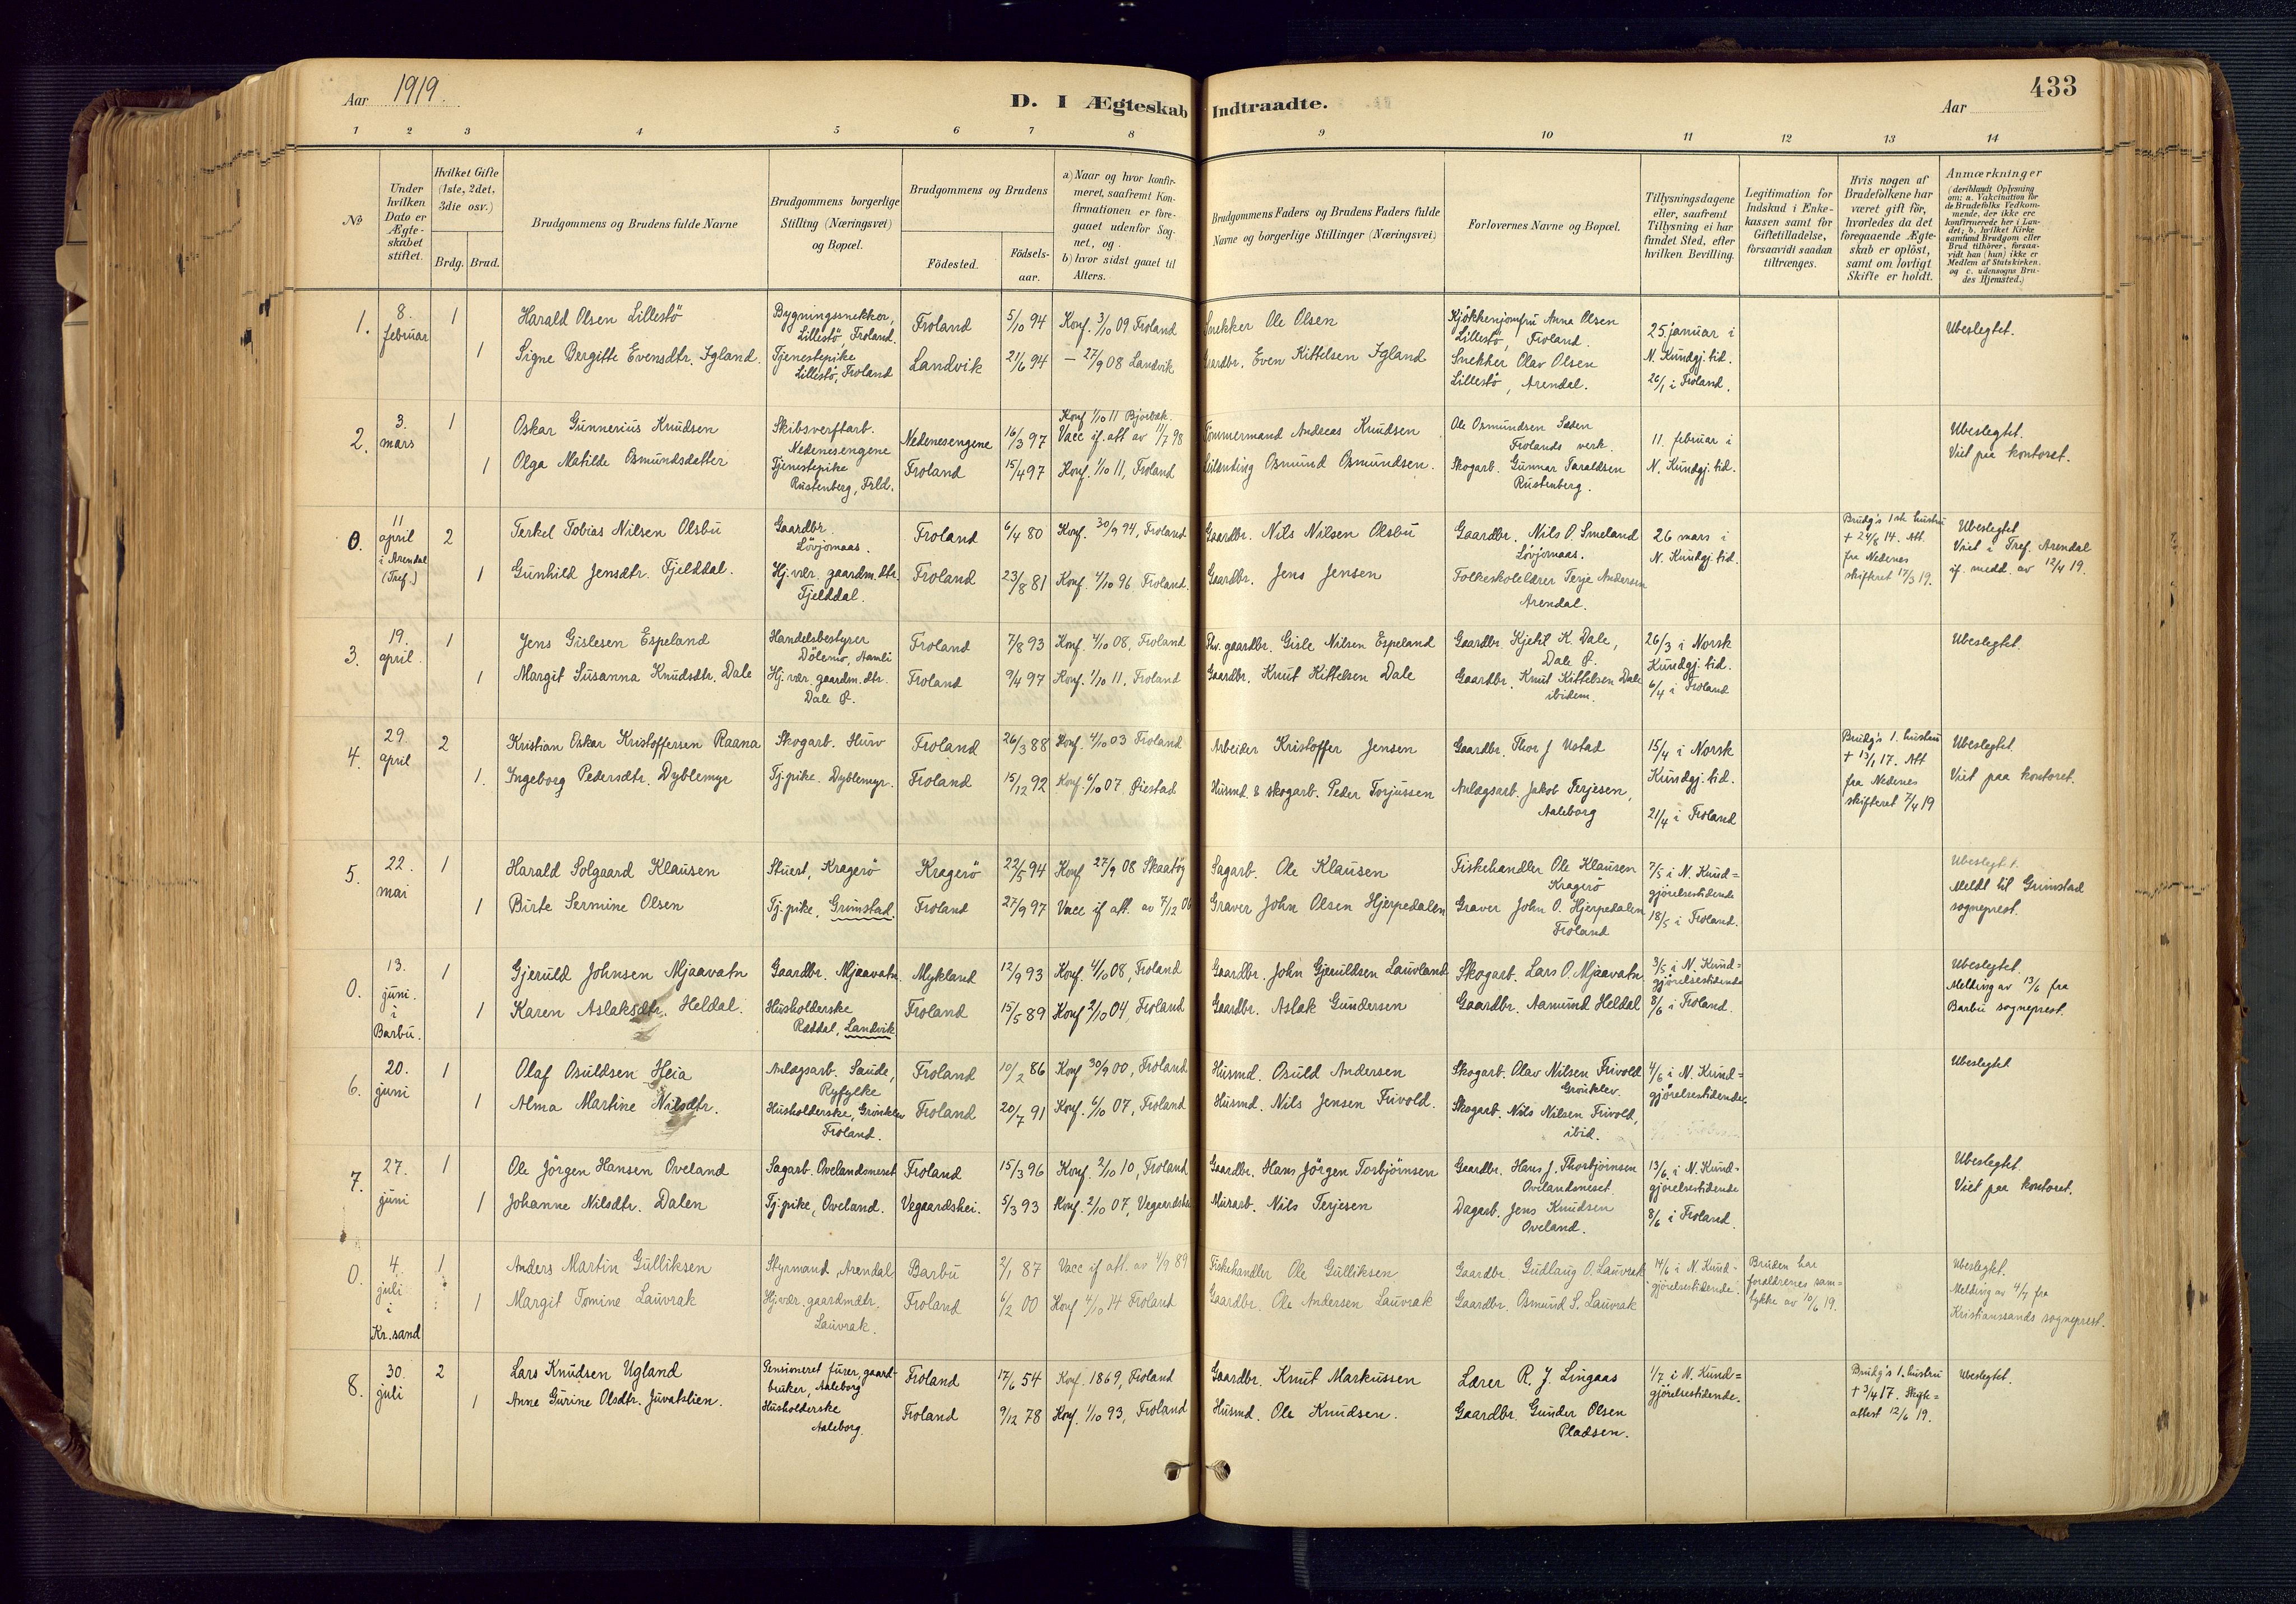 Aar 1919.
D. I Ægteskab Indtraadte.
Aar
433
1 2 3 4 5 6 7 8 9 10 11 12 13 14
No
Under hvilken Dato er Ægteskabet stiftet.
Hvilket Gifte (1ste, 2det, 3die osv.)
Brdg. Brud.
Brudgommens og Brudens fulde Navne
Brudgommens borgerlige Stilling (Næringsvei) og Bopæl.
Brudgommens og Brudens
Födested.
Födsels-aar.
a) Naar og hvor konfirmeret, saafremt Konfirmationen er foregaaet udenfor Sognet, og
b) hvor sidst gaaet til Alters.
Brudgommens Faders og Brudens Faders fulde Navne og borgerlige Stillinger (Næringsvei)
Forlovernes Navne og Bopæl.
Tillysningsdagene eller, saafremt Tillysning ei har fundet Sted, efter hvilken Bevilling.
Legitimation for Indskud i Enkekassen samt for Giftetilladelse, forsaavidt saadan tiltrænges.
Hvis nogen af Brudefolkene har været gift för, hvorledes da det foregaaende Ægteskab er oplöst, samt om lovligt Skifte er holdt.
Anmærkninger
(deriblandt Oplysning om: a. Vakcination for de Brudefolks Vedkommende, der ikke ere konfirmerede her i Landet; b. hvilket Kirkesamfund Brudgom eller Brud tilhörer, forsaavidt han (hun) ikke er Medlem af Statskirken, og c. udensogns Brudes Hjemsted.)
1. 8. februar 1 Harald Olsen Lillestö Bygningssnekker, Lillestö, Froland. Froland 5/10 94 Konf. 3/10 09 Froland Snekker Ole Olsen Kjökkenjomfru Anna Olsen Lillestö, Froland. 25 januar i N. Kundgj. tid. 26/1 i Froland. Ubeslegtet.
1 Signe Bergitte Evensdtr. Igland. Tjenestepike Lillestö, Froland Landvik 21/6 94 — 27/9 08 Landvik Gaardbr. Even Kittelsen Igland Snekker Olav Olsen Lillestö, Arendal.
2. 3. mars 1 Oskar Gunnerius Knudsen Skibsverftarb. Nedenesengene Nedenesengene 16/3 97 Konf 1/10 11 Bjorbæk. Vacc if. att av 11/7 98 Tömmermand Andreas Knudsen Ole Osmundsen Frolands verk. 11. februar i N. Kundgj. tid. Ubeslegtet. Viet paa kontoret.
1 Olga Matilde Osmundsdatter Tjenestepike Rustenberg, Frld. Froland 15/4 97 Konf. 1/10 11, Froland Osmund Osmundsen. Skogarb. Gunnar Taraldsen Rustenberg.
0. 11 april i Arendal (Tref.) 2 Terkel Tobias Nilsen Olsbu Gaardbr. Lövjomaas. Froland 6/4 80 Konf. 30/9 94, Froland Gaardbr. Nils Nilsen Olsbu Gaardbr. Nils O. Smeland Lövjomaas. 26 mars i N. Kundgj. tid. Brudg's 1ste hustru + 24/8 14. Att. fra Nedenes skifteret 17/3 19. Ubeslegtet. Viet i Tref. Arendal if. medd. av 12/4 19.
1 Gunhild Jensdtr. Fjelddal. Hj. vær. gaardm. dtr. Fjelddal. Froland 23/8 81 Konf. 4/10 96 Froland. Gaardbr. Jens Jensen Folkeskolelærer Terje Andersen Arendal.
3. 19. april. 1 Jens Gislesen Espeland Handelsbestyrer Dölemo, Aamli Froland 7/8 93 Konf. 4/10 08, Froland Fhv. gaardbr. Gisle Nilsen Espeland Gaardbr. Kjetil K. Dale, Dale P. 26/3 i Norsk Kundgj. tid. 6/4 i Froland Ubeslegtet.
1 Margit Susanna Knudsdtr. Dale Hj. vær. gaardm. dtr. Dale P. Froland 9/4 97 Konf. 1/10 11, Froland Gaardbr. Knut Kittelsen Dale Gaardbr. Knut Kittelsen Dale ibidem.
4. 29. april 2 Kristian Oskar Kristoffersen Raana Skogarb. Hurv Froland 26/3 88 Konf. 4/10 03 Froland Arbeider Kristoffer Jensen Gaardbr. Thor J Ustad 15/4 i Norsk Kundgj. tid. 21/4 i Froland Brudg's 1. hustru + 13/1 17. Att fra Nedenes skifteret 7/4 19 Ubeslegtet. Viet paa kontoret.
1. Ingeborg Pedersdtr. Dyblemyr Tj. pike. Dyblemyr. Froland 15/12 92 Konf. 6/10 07 Öiestad Husmd. & skogarb. Peder Torjussen Anlægsarb. Jakob Terjesen, Aaleborg
5. 22. mai 1 Harald Solgaard Klausen Stuert, Kragerö Kragerö 22/5 94 Konf 27/9 08 Skaatöy Sagarb. Ole Klausen Fiskehandler Ole Klausen Kragerö 7/5 i N. Kundgjörelsestidende 18/5 i Froland. Ubeslegtet. Meldt til Grimstad sogneprest.
1 Birte Sermine Olsen Tj. pike, Grimstad. Froland 27/9 97 Vacc if att. av 7/12 06 Graver John Olsen Hjerpedalen Graver John O. Hjerpedalen Froland
0. 13. juni. i Barbu. 1 Gjeruld Johnsen Mjaavatn Gaardbr. Mjaavatn. Mykland 12/9 93 Konf. 4/10 08, Froland Gaardbr. John Gjeruldsen Lauvland Skogarb. Lars O. Mjaavatn. 3/5 i N. Kundgjörelsestidende 8/6 i Froland. Ubeslegtet. Melding av 13/6 fra Barbu sogneprest.
1 Karen Aslaksdtr. Heldal. Husholderske Ræddal, Landvik Froland 15/5 89 Konf 2/10 04, Froland Gaardbr. Aslak Gundersen Gaardbr. Aamund Heldal
6. 20. juni 1 Olaf Osuldsen Heia Anlægsarb. Saude, Ryfylke Froland 10/2 86 Konf 30/9 00, Froland Husmd. Osuld Andersen Skogarb. Olav Nilsen Frivold Grönklev. 4/6 i N. Kundgjörelsestidende. Ubeslegtet
1 Alma Martine Nilsdtr. Husholderske, Grönklev Froland. Froland 20/7 91 Konf. 6/10 07, Froland Husmd. Nils Jensen Frivold. Skogarb. Nils Nilsen Frivold, ibid.
7. 27. juni 1 Ole Jörgen Hansen Oveland Sagarb. Ovelandsneset Froland 15/3 96 Konf. 2/10 10, Froland Gaardbr. Hans Jörgen Torbjörnsen Gaardbr. Hans J. Thorbjörnsen Ovelandsneset 13/6 i N. Kundgjörelsestidende 8/6 i Froland. Ubeslegtet. Viet paa kontoret.
1 Johanne Nilsdtr. Dalen Tj. pike, Oveland. Vegaardshei. 5/3 93 Konf. 2/10 07, Vegaardshei Murarb. Nils Terjesen Dagarb. Jens Knudsen Oveland.
0. 4. juli i Kr.sand 1 Anders Martin Gulliksen Styrmand, Arendal Barbu 2/1 87 Vacc if att. av 4/9 89 Fiskehandler Ole Gulliksen Gaardbr. Gudlaug O. Lauvrak 14/6 i N. Kundgjörelsestidende. Bruden har forældrenes samtykke av 10/6 19. Ubeslegtet. Melding av 4/7 fra Kristianssands sogneprest.
1 Margit Tomine Lauvrak Hj. vær. gaardmdtr. Lauvrak. Froland 6/2 00 Konf 4/10 14 Froland Gaardbr. Ole Andersen Lauvrak Gaardbr. Osmund S. Lauvrak
8. 30. juli 2 Lars Knudsen Ugland Pensioneret furer, gaardbruker, Aaleborg Froland 17/6 54 Konf. 1869, Froland Gaardbr. Knut Markussen Lærer R. J. Lingaas 1/7 i N. Kundgjörelsestidende. Brudg's 1. hustru + 3/4 17. Skifteattest 12/6 19. Ubeslegtet.
1 Anne Gurine Olsdtr. Juvatslien. Husholderske Aaleborg. Froland 9/12 78 Konf. 1/10 93, Froland Husmd. Ole Knudsen. Gaardbr. Gunder Olsen Pladsen.